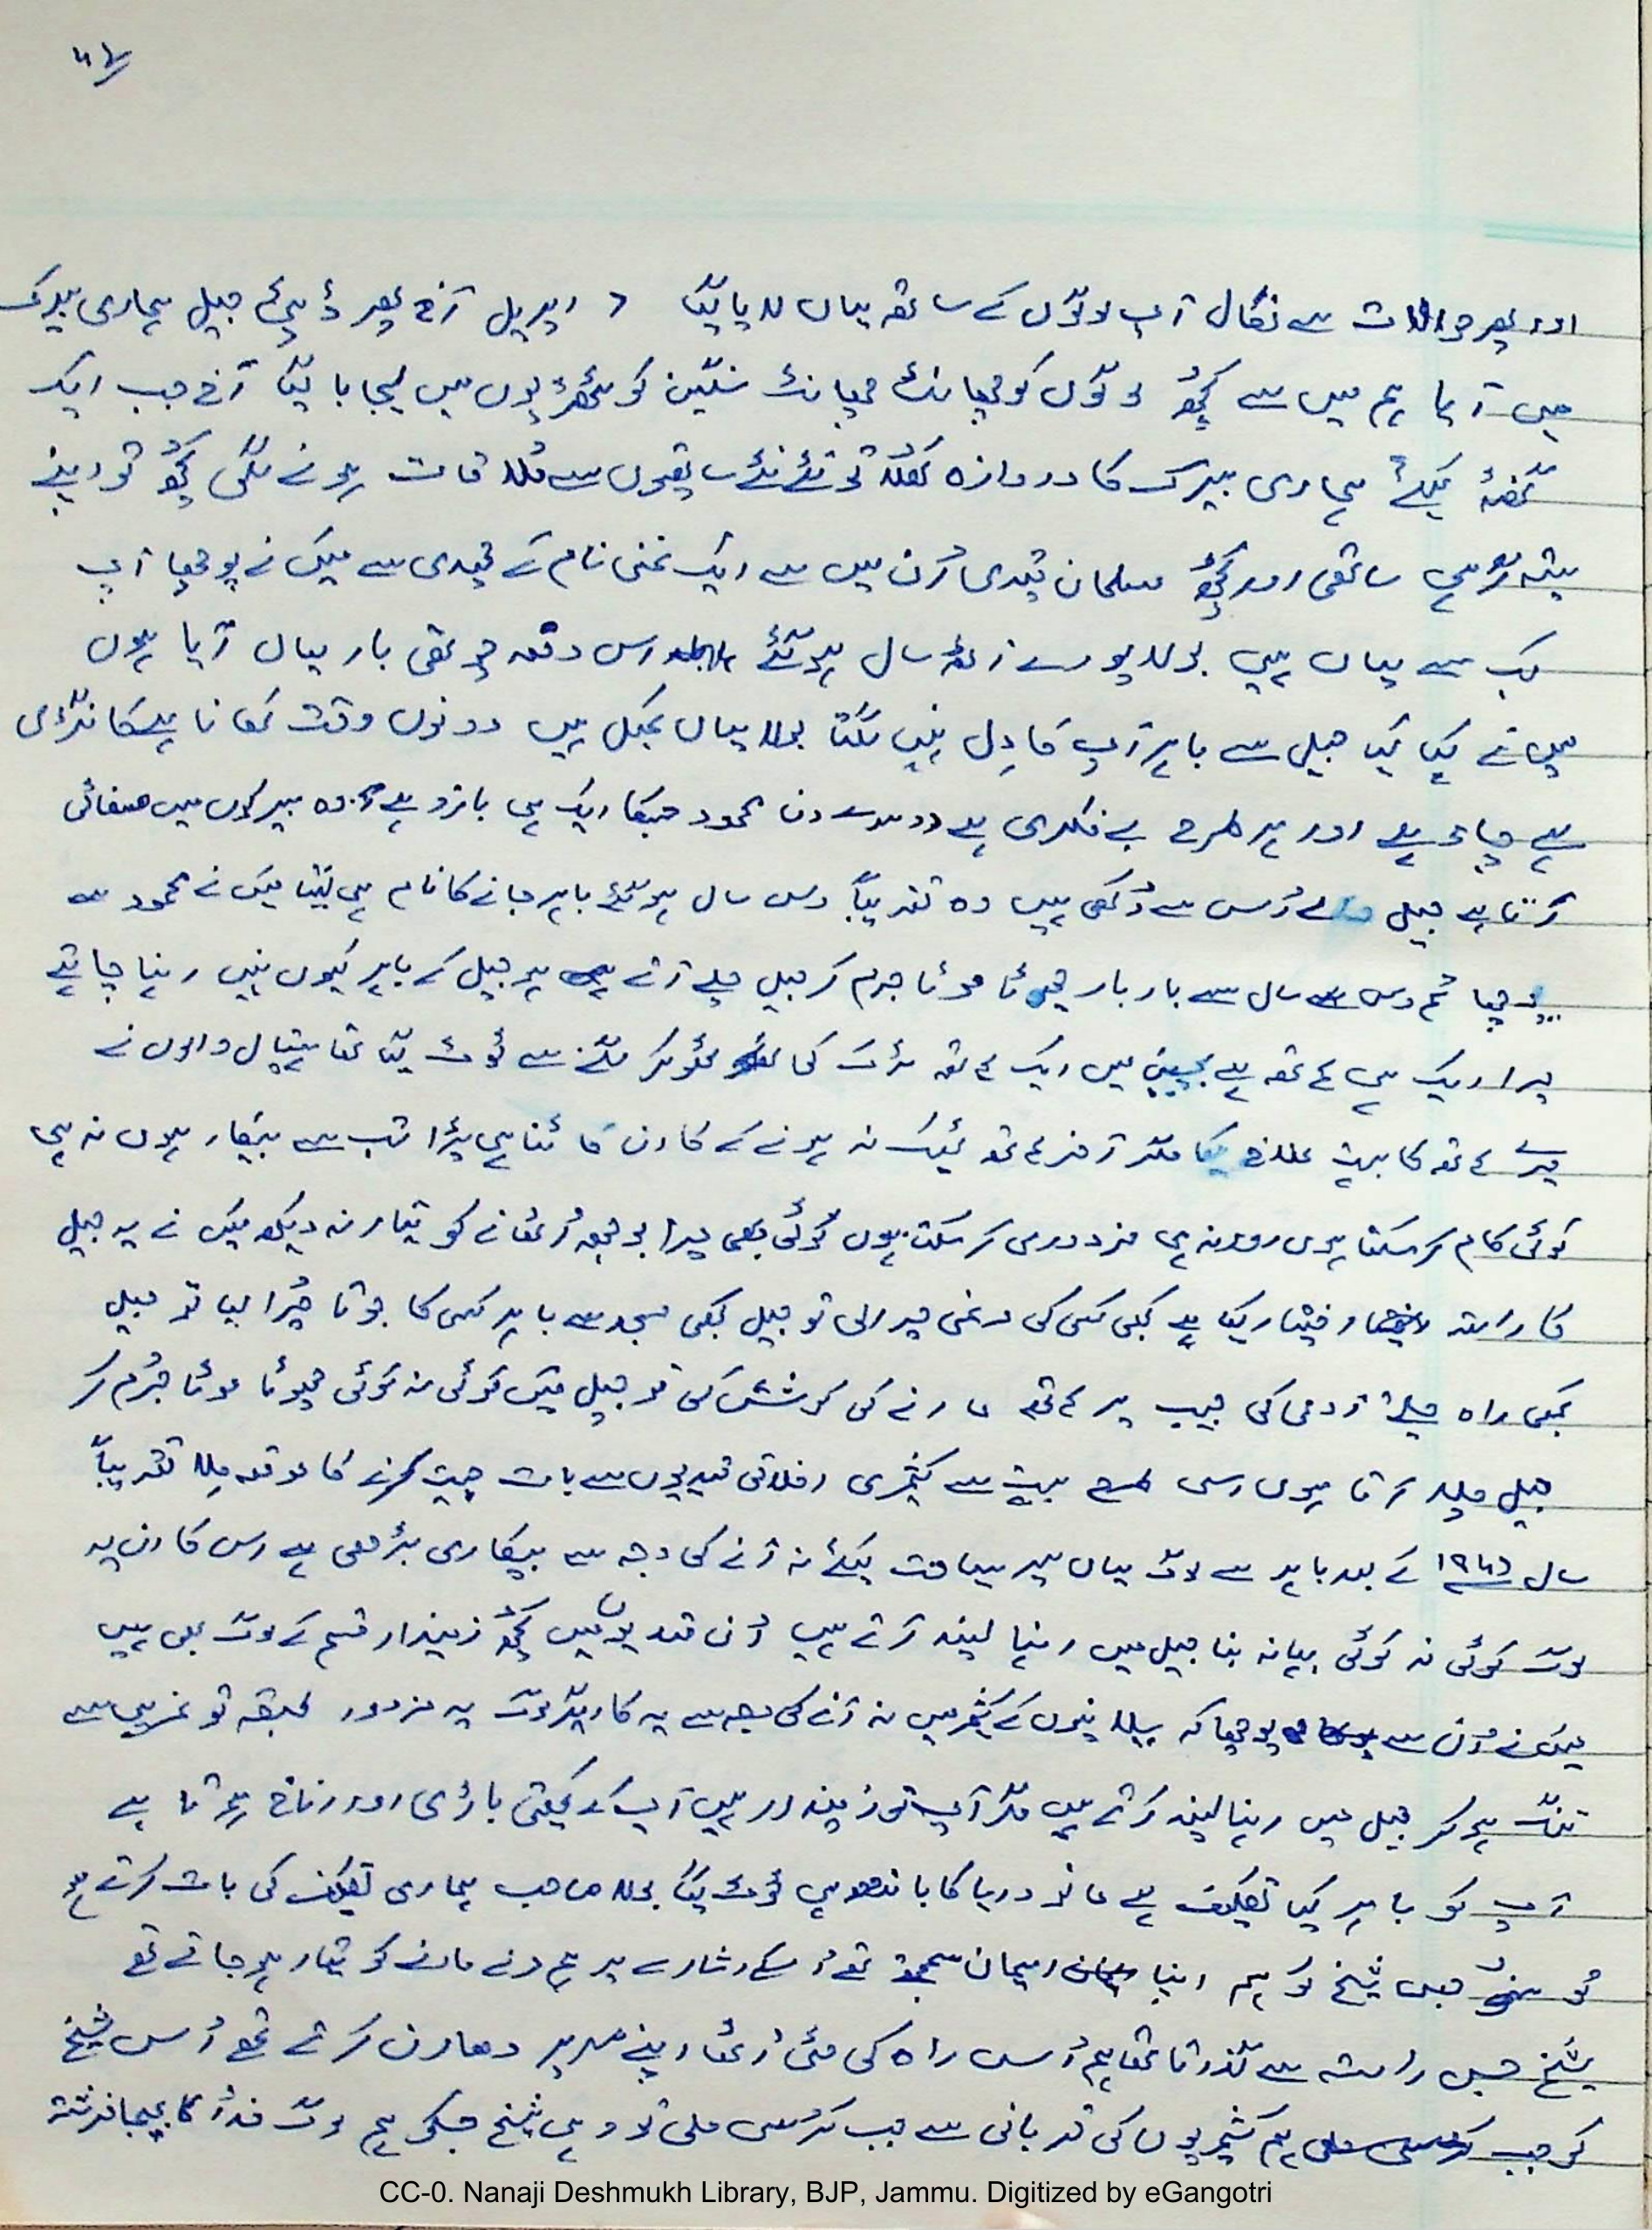 اور پھر حوالات سے نکال آپ لوگوں کے ساتھ یہاں لایا گیا ۶ اپریل آج پھر ڈپٹی جیل ہماری بیرک
میں آیا ہم میں سے کچھ لوگوں کو چھانٹ چھانٹ سنگین کوٹھڑیوں میں لیجایا گیا آج جب ایک
گھنٹہ کیلئے ہماری بیرک کا دروازہ کھلا تو نئے نئے ساتھیوں سے ملاقات ہونے لگی کچھ تو اپنے
ستیہ گرہی ساتھی اور کچھ مسلمان قیدی اُن میں سے ایک غنی نام کے قیدی سے میں نے پوچھا آپ
کب سے یہاں ہیں بولا پورے اڑھائی سال ہو گئے اس دفعہ چوتھی بار یہاں آیا ہوں
میں نے کہا کیا جیل سے باہر آپ کا دِل نہیں لگتا بولا یہاں بجلی ہیں دونوں وقت کھانا ہے کانگڑی
ہے چائے ہے اور ہر طرح بے فکری ہے دوسرے دن محمود جسکا ایک ہی بازو ہے وہ بیرکوں میں صفائی
کرتا ہے جیل والے اُس سے دُکھی ہیں وہ تقریباً دس سال ہو گئے باہر جانے کا نام ہی نہیں لیتا میں نے محمود سے
پوچھا تم دس سال سے بار بار چھوٹا موٹا جرم کر جیل چلے آتے ہو جیل کے باہر کیوں نہیں رہنا چاہتے
میرا ایک ہی ہاتھ ہے بچپن میں ایک ہاتھ ٹرک کی ٹھوکر لگنے سے ٹوٹ گیا تھا ہسپتال والوں نے
میرے ہاتھ کا بہت علاج کیا مگر آخر ہاتھ ٹھیک نہ ہونے کے کارن کاٹنا ہی پڑا تب سے بیکار ہوں نہ ہی
کوئی کام کر سکتا ہوں اور نہ ہی مزدوری کر سکتا ہوں کوئی بھی میرا بوجھ اُٹھانے کو تیار نہ دیکھ میں نے یہ جیل
کا راستہ اختیار کیا ہے کبھی کسی کی مرغی چرا لی تو جیل کبھی مسجد سے باہر کسی کا جوتا چُرا لیا تو جیل
کبھی راہ چلتے آدمی کی جیب پر ہاتھ مارنے کی کوشش کی تو جیل میں کوئی نہ کوئی چھوٹا موٹا جُرم کر
جیل چلا آتا ہوں اسی طرح بہت سے کشمیری اخلاقی قیدیوں سے بات چیت کرنے کا موقعہ مِلا تقریباً
سال ۱۹۴۶ کے بعد باہر سے لوگ یہاں سیر سیاحت کیلئے نہ آنے کی وجہ سے بیکاری بڑھی ہے اس کارن یہ
لوگ کوئی نہ کوئی بہانہ بنا جیل میں رہنا پسند کرتے ہیں اُن قیدیوں میں کچھ زمیندار قسم کے لوگ بھی ہیں
میں نے اُن سے پوچھا کہ سیلانیوں کے کشمیر میں نہ آنے کی وجہ سے یہ کاریگر لوگ یہ مزدور طبقہ تو غریبی سے
تنگ ہو کر جیل میں رہنا پسند کرتے ہیں مگر آپ تو زمیندار ہیں آپ کے کھیتی باڑی اور اناج ہوتا ہے
آپ کو باہر کیا تکلیف ہے مانو دریا کا باندھ ہی ٹوٹ گیا بولا صاحب ہماری تکلیف کی بات کرتے ہو
تو سنو جس شیخ کو ہم اپنا ایمان سمجھتے تھے اُسکے اشارے پر ہم مرنے مارنے کو تیار ہو جاتے تھے
شیخ جس راستہ سے گذرتا تھا ہم اُس راہ کی مٹی اُٹھا اپنے سر پر دھارن کرتے تھے اُس شیخ
کو جب ہم کشمیریوں کی قربانی سے جب کُرسی ملی تو وہی شیخ جسکو ہم لوگ خدا کا بھیجا فرشتہ
CC-0. Nanaji Deshmukh Library, BJP, Jammu. Digitized by eGangotri